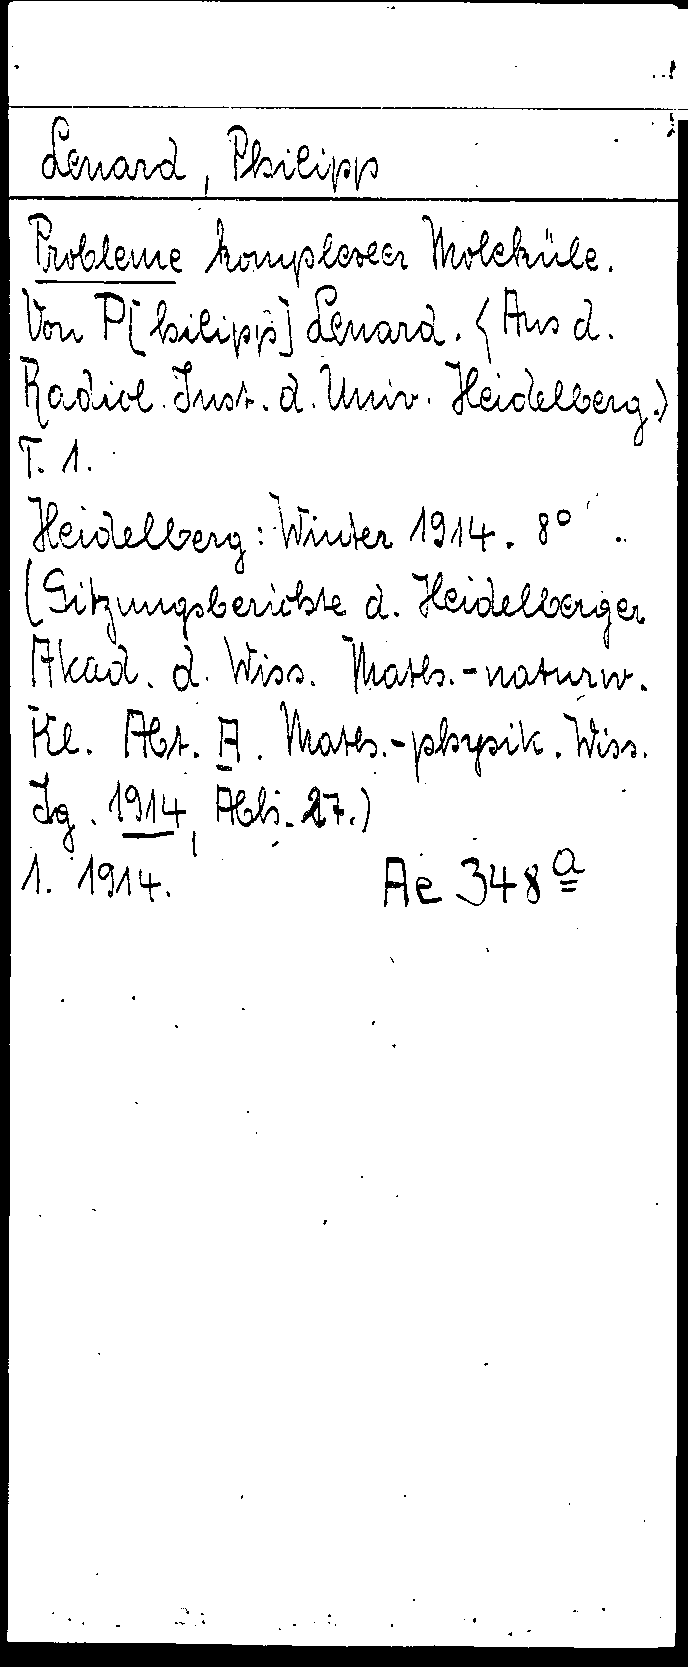 Lenard, Philipp
Probleme komplexer Moleküle.
Von P[hilipp] Lenard. (Aus d.
Radiol. Inst. d. Univ. Heidelberg.)
T. 1.
Heidelberg: Winter 1914. 8°
(Sitzungsberichte d. Heidelberger
Akad. d. Wiss. Math.-naturw.
Kl. Abt. A. Math.-physik. Wiss.
Jg. 1914, Abh. 27.)
1. 1914. Ae 348ª